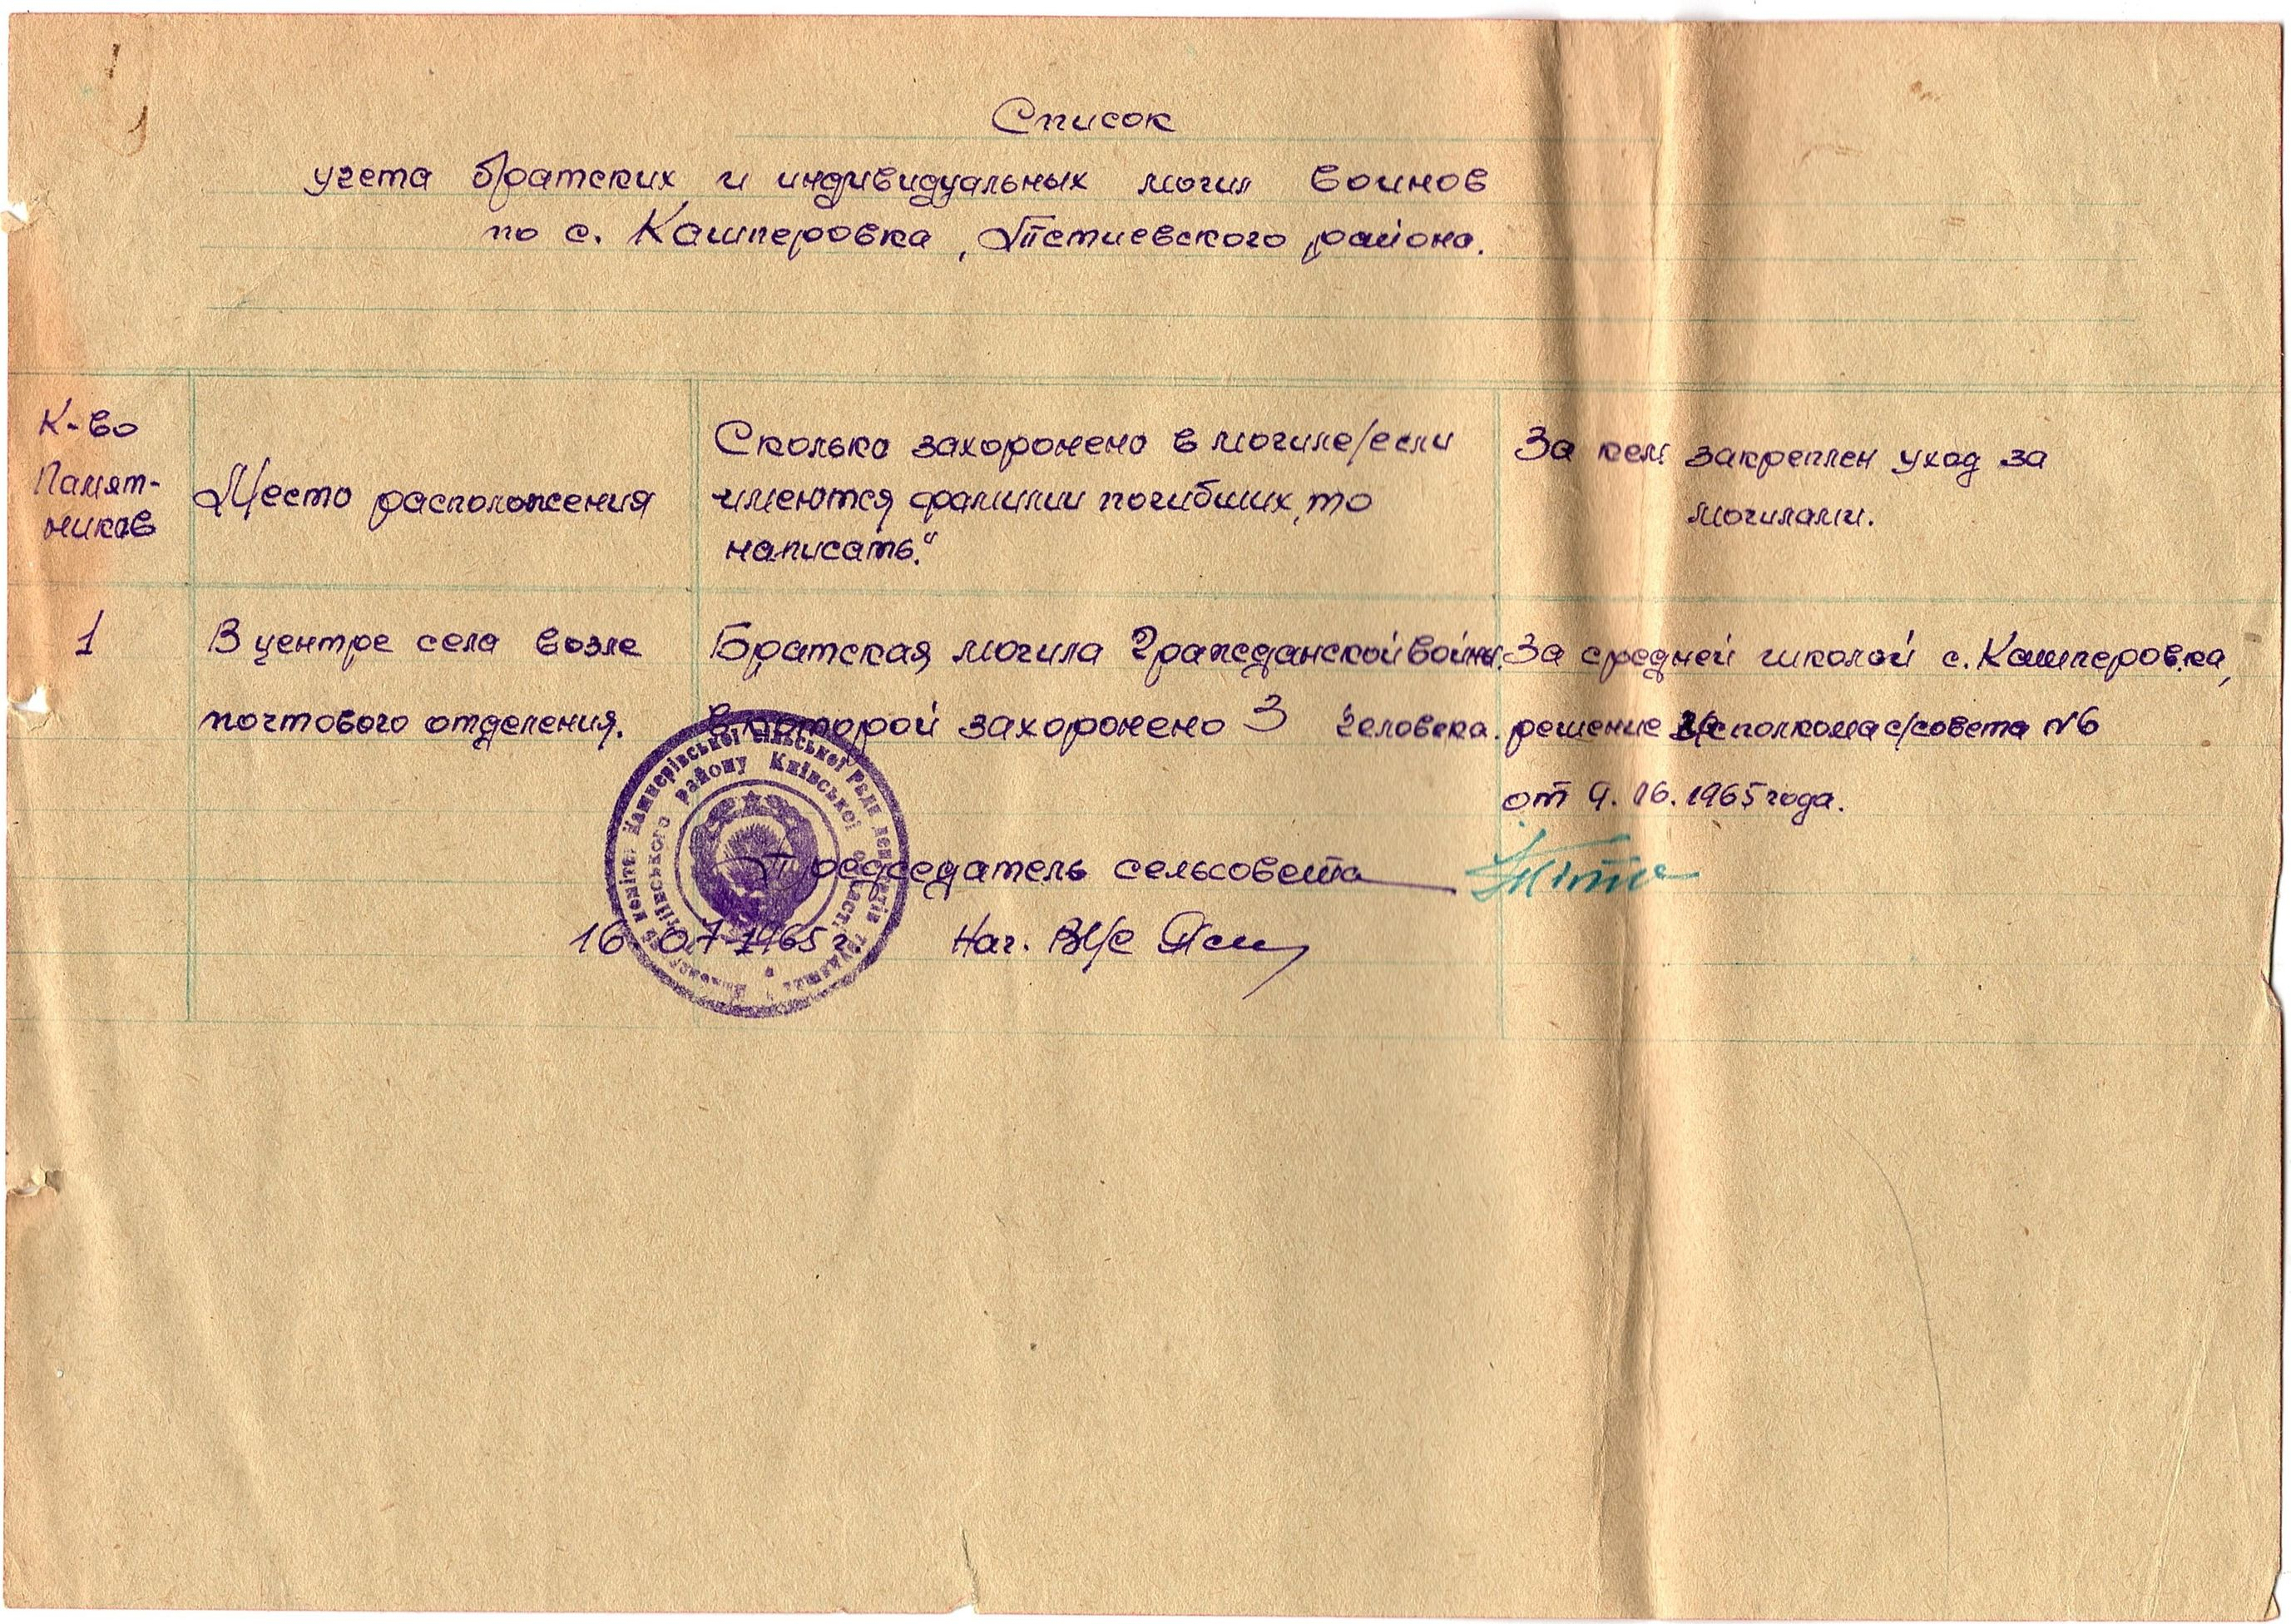 Список
учета братских и индивидуальных могил воинов
по с. Кашперовка, Тетиевского района.
К-во
Памят-
ников
Место расположения
Сколько захоронено в могиле/если
имеются фамилии погибших, то
написать."
За кем закреплен уход за
могилами.
1
В центре села возле
почтового отделения.
Братская могила Гражданской войны.
в которой захоронено 3 человека.
За средней школой с. Кашперовка,
решение исполкома с/совета №6
от 9. 06. 1965 года.
Председатель сельсовета
16 07 1965 г.
Нач. ВУС
Кашперівської сільської Ради депутатів трудящих
району Київської області